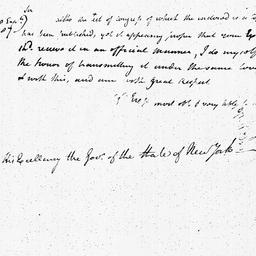 Sir
an act of congress of which the inclosed is a
has been published, yet it appearing proper that your
receive it in an official manner, I do my
the honor of transmitting it under the same
with this, and am with great respect
Yr Excy's most obt & very hble
His Excellency the Gov. of the State of New York